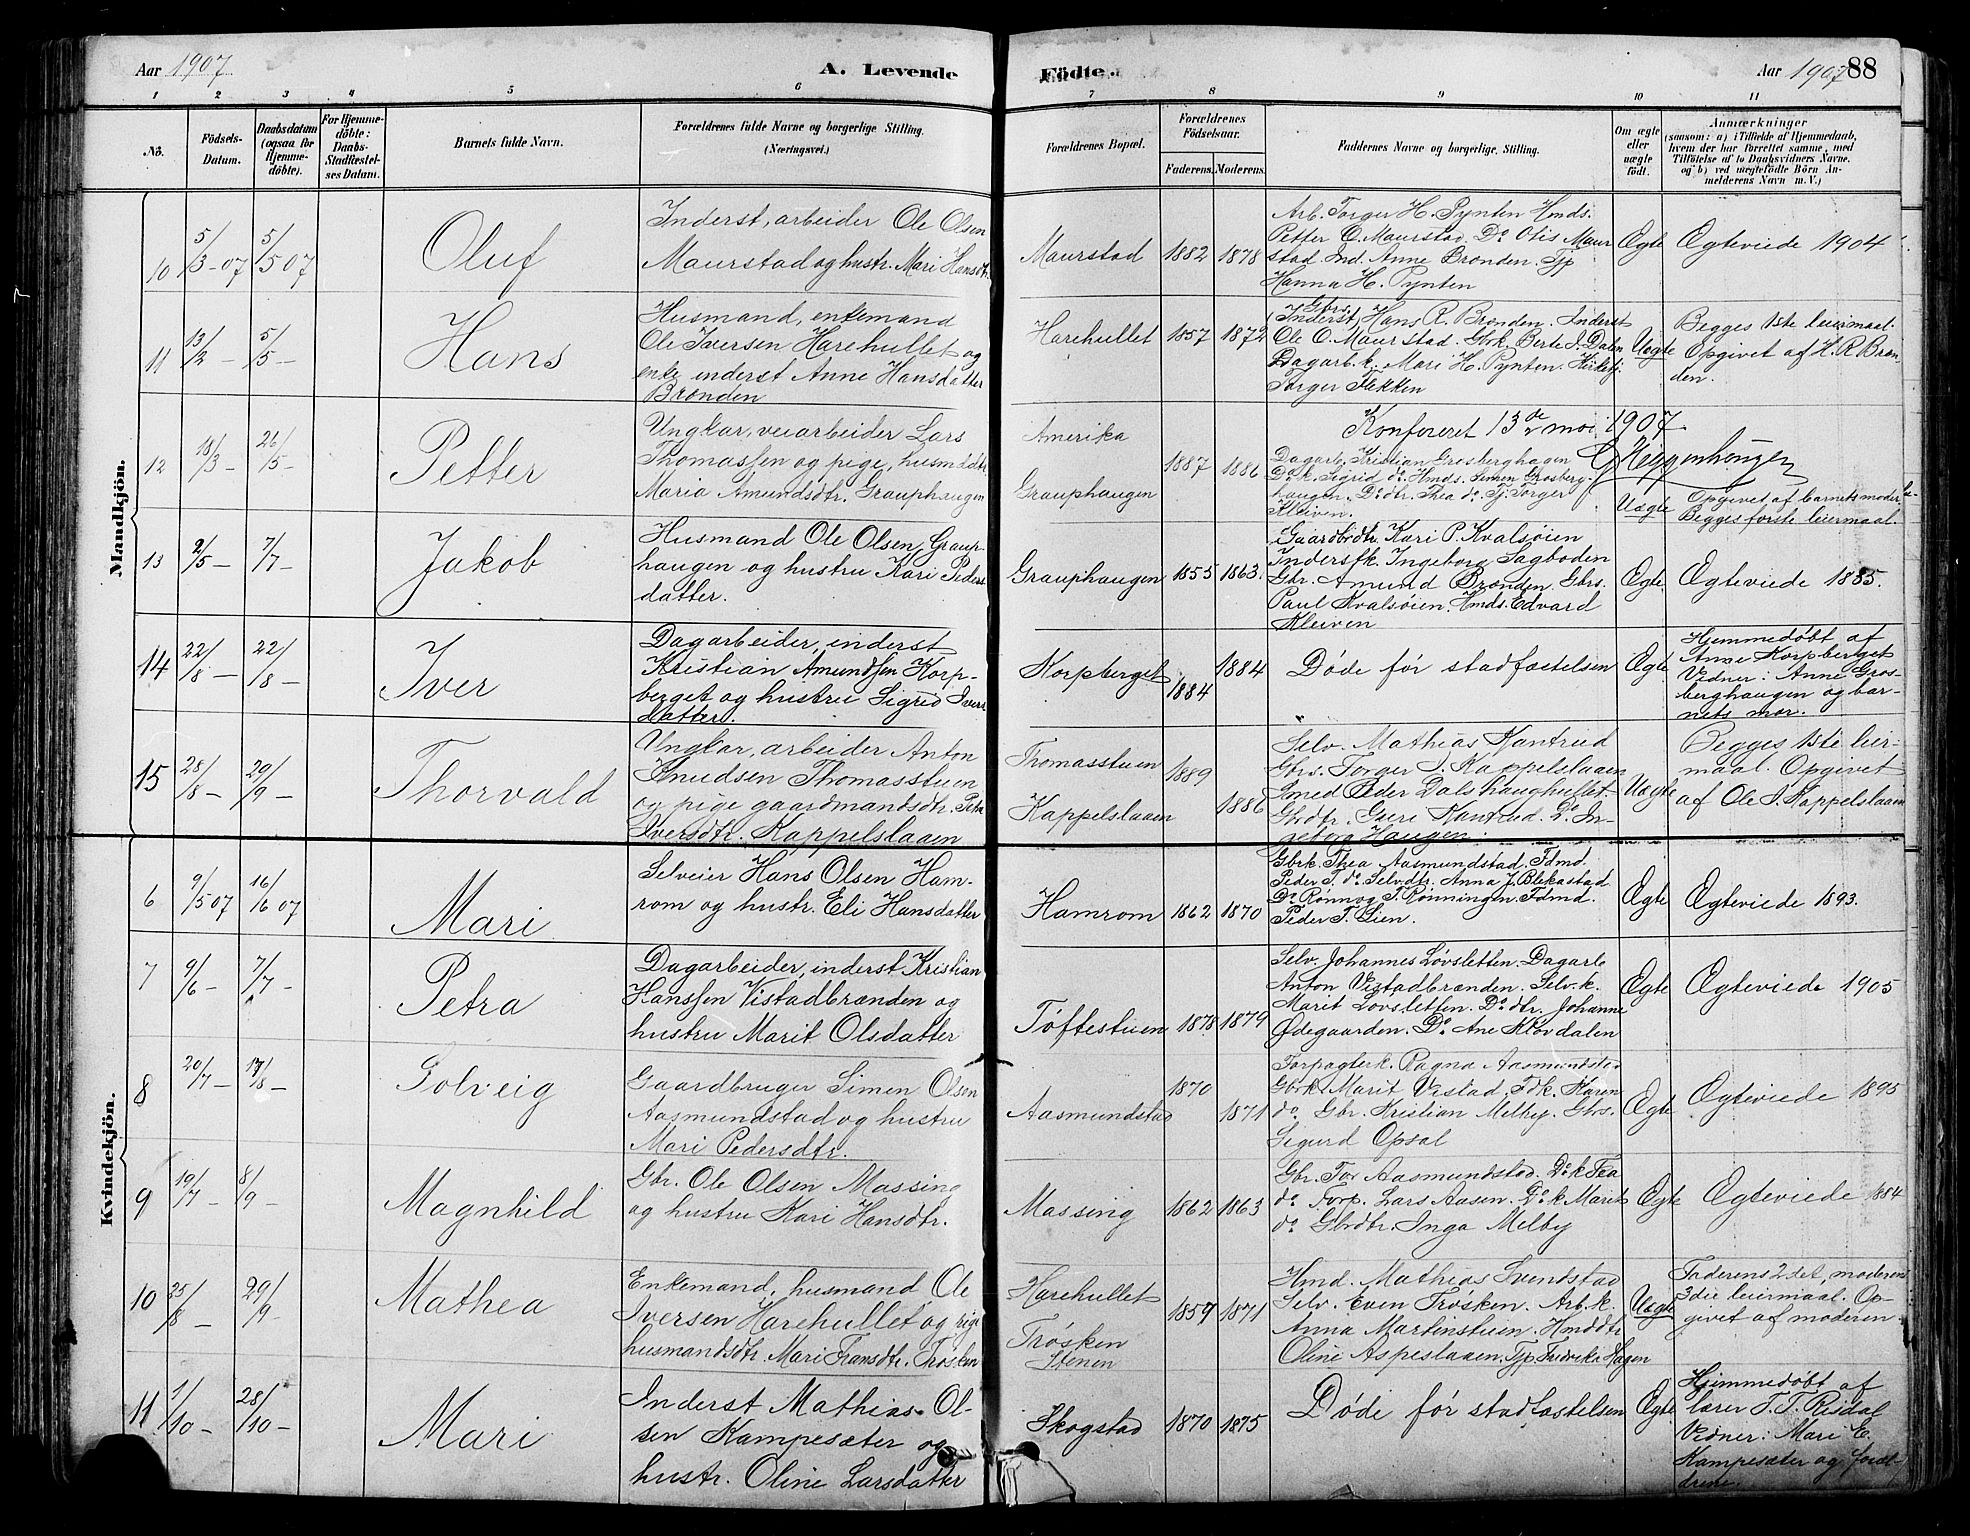 Aar 1907
A. Levende
Födte.
Aar 1907
88
1 2 3 4 5 6 7 8 9 10 11
No.
Födsels-
Datum.
Daabsdatum
(ogsaa for
Hjemme-
döbte).
For Hjemme-
döbte:
Daabs-
Stadfæstel-
ses Datum.
Barnets fulde Navn.
Forældrenes fulde Navne og borgerlige Stilling.
(Næringsvei.)
Forældrenes Bopæl.
Forældrenes
Födselsaar.
Faderens. Moderens.
Faddernes Navne og borgerlige Stilling.
Om ægte
eller
uægte
födt.
Anmærkninger
(saasom: a) i Tilfælde af Hjemmedaab,
hvem der har forrettet samme, med
Tilföielse af to Daabsvidners Navne,
og b) ved uægtefödte Börn An-
melderens Navn m. V.)
Mandkjön.
10 5/3-07 5/5 07 Oluf
Inderst, arbeider Ole Olsen
Maurstad og hustr. Mari Hansdtr.
Maurstad 1882 1878
Arb. Torger H. Pynten Hmds.
Petter O. Maurstad. Do Otis Maur
stad. Ind. Anne Brønden. Tj.
Hanna H. Pynten
Ægte Ægteviede 1904
11 13/2- 5/5- Hans
Husmand, enkemand
Ole Iversen Harehullet og
enke inderst Anne Hansdatter
Brønden
Harehullet 1857 1872
Gbrs.
(Inderst) Hans R. Brønden. Inderst
Ole O. Maurstad. Gbk. Berte J. Dalen
Dagarb.k. Mari H. Pynten. Kirketj.
Torger Flekken
Uægte
Begges 1ste leiermaal.
Opgivet af H. R. Brøn-
den.
12 18/3- 26/5- Petter
Ungkar, veiarbeider Lars
Thomassen og pige, husmddtr.
Maria Amundsdtr. Grauphaugen
Amerika
Grauphaugen
1887 1886
Konfereret 13de mai 1907
G Heggenhougen
Dagarb. Kristian Grosberghagen
Do k. Sigrid do. Hmds. Simen Grosberg-
haugen. Do dtr. Thea do. Tj. Torger
Kleiven.
Uægte
Opgivet af barnets moder
Begges første leiermaal.
13 2/5- 7/7- Jakob
Husmand Ole Olsen Graup-
haugen og hustru Kari Peders
datter.
Grauphaugen 1855 1863.
Gaardbrdtr. Kari P. Kvalsøien
Inderstk. Ingeborg Sagboden
Gbr. Amund Brønden. Gbrs.
Paul Kvalsøien. Hmds. Edvard
Kleiven
Ægte Ægteviede 1885.
14 22/8- 22/8- Iver
Dagarbeider, inderst
Kristian Amundsen Korp-
berget og hustru Sigrid Ivers
datter.
Korpberget 1884 1884
Døde før stadfæstelsen
Ægte
Hjemmedøbt af
Anne Korpberget
Vidner: Anne Gros-
berghaugen og bar-
nets mor.
15 28/8- 29/9- Thorvald
Ungkar, arbeider Anton
Knudsen Thomasstuen
og pige gaardmandsdtr. Petra
Iversdtr. Kappelslaaen
Thomasstuen
Kappelslaaen
1889 1886
Selv. Mathias Kantrud
Gbrs. Torger I. Kappelslaaen
Smed Peder Dalshaughullet
Gbdtr. Guri Kantrud. Do In-
geborg Haugen.
Uægte
Begges 1ste leier-
maal. Opgivet
af Ole I. Kappelslaaen
Kvindekjön.
6 9/5 07 16/6 07 Mari
Selveier Hans Olsen Ham-
rom og hustr. Eli Hansdatter
Hamrom 1862 1870
Gbrk. Thea Aasmundstad. Fdmd.
Peder T. do. Selv.dtr. Anna J. Blekastad
Do Rønnog T. Rønningen. Fdmd.
Peder T. Lien.
Ægte Ægteviede 1893.
7 9/6- 7/7- Petra
Dagarbeider, inderst Kristian
Hanssen Vistadbrænden og
hustru Marit Olsdatter
Tøftestuen 1878 1879
Selv. Johannes Løvsletten. Dagarb.
Anton Vistadbrænden. Selv.k.
Marit Løvsletten. Do dtr. Johanne
Ødegaarden. Do Ane Klovdalen
Ægte Ægteviede 1905
8 20/7- 17/8- Solveig
Gaardbruger Simen Olsen
Aasmundstad og hustru
Mari Pedersdtr.
Aasmundstad 1870 1871
Forpagterk. Ragna Aasmundstad
Gbrk. Marit Vistad. Fdk. Karen
do. Gbr. Kristian Melby. Gbrs.
Sigurd Opsal
Ægte Ægteviede 1895
9 19/7- 8/9- Magnhild
Gbr. Ole Olsen Massing
og hustru Kari Hansdtr.
Massing 1862 1863
Gbr. Tor Aasmundstad. Do k. Tea
do. Forp. Lars Aasen. Do k. Marit
do. Gbrdtr. Inga Melby
Ægte Ægteviede 1884
10 25/8- 29/9- Mathea
Enkemand, husmand Ole
Iversen Harehullet og pige
husmandsdtr. Mari Fransdtr. Trøsken
Harehullet
Trøsken
Stenen
1859 1871
Hmd. Mathias Svendstad
Selv. Even Trøsken. Arb.k.
Anna Martinstuen. Hmddtr.
Oline Aspeslaaen. Tjp. Fredrike Hagen
Uægte
Faderens 2det, moderens
3die leiermaal. Op-
givet af moderen.
11 1/10- 28/10- Mari
Inderst Mathias Ol-
sen Kampesæter og
hustr. Oline Larsdatter
Skogstad 1870 1875
Døde før stadfæstelsen
Ægte
Hjemmedøbt af
lærer T. T. Risdal
Vidner: Mari E.
Kampesæter og foræl-
drene.